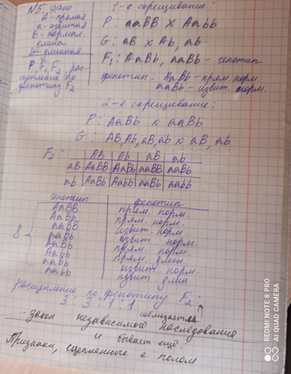 №5. Дано
А - прямая
а - извитая
В - нормал.
длина
P, F₁, F₂, рас-
щепление по
фенотипу F₂
1-е скрещивание:
P: aaBB x Aabb
G: aB x Ab, ab
F₁: AaBb, aaBb - генотип
фенотип - AaBb - прям. норм.
aaBb - извит. норм.
2-е скрещивание:
P: AaBb x aaBb
G: AB, Ab, aB, ab x aB, ab
F₂:
AB Ab aB ab
aB AaBB AaBb aaBB aaBb
ab AaBb Aabb aaBb aabb
генотип фенотип
AaBB прям. норм.
AaBb прям. норм.
aaBB извит. норм.
aaBb извит. норм.
AaBb прям. норм.
Aabb прям. длин
aaBb извит. норм.
aabb извит. длин
расщепление по фенотипу F₂
3 : 3 : 1 : 1
закон независимого наследования
и бывает ещё.
Признаки, сцепленные с полом
REDMI NOTE 8 PRO
AI QUAD CAMERA